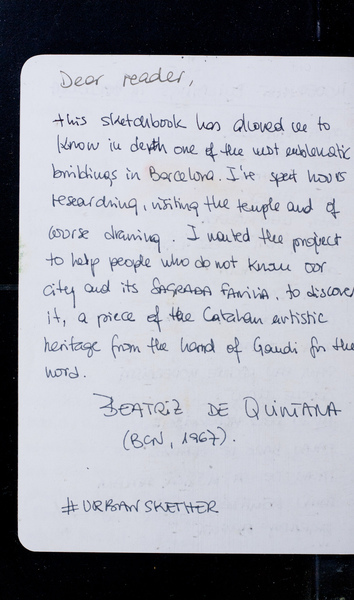 Dear reader,
this sketchbook has allowed me to
know in depth one of the most emblematic
buildings in Barcelona. I've spent hours
researching, visiting the temple and of
course drawing. I wanted the project
to help people who do not know our
city and its SAGRADA FAMILIA, to discover
it, a piece of the Catalan artistic
heritage from the hand of Gaudi for the
word.
BEATRIZ DE QUINTANA
(BCN, 1967).
#URBANSKETHER